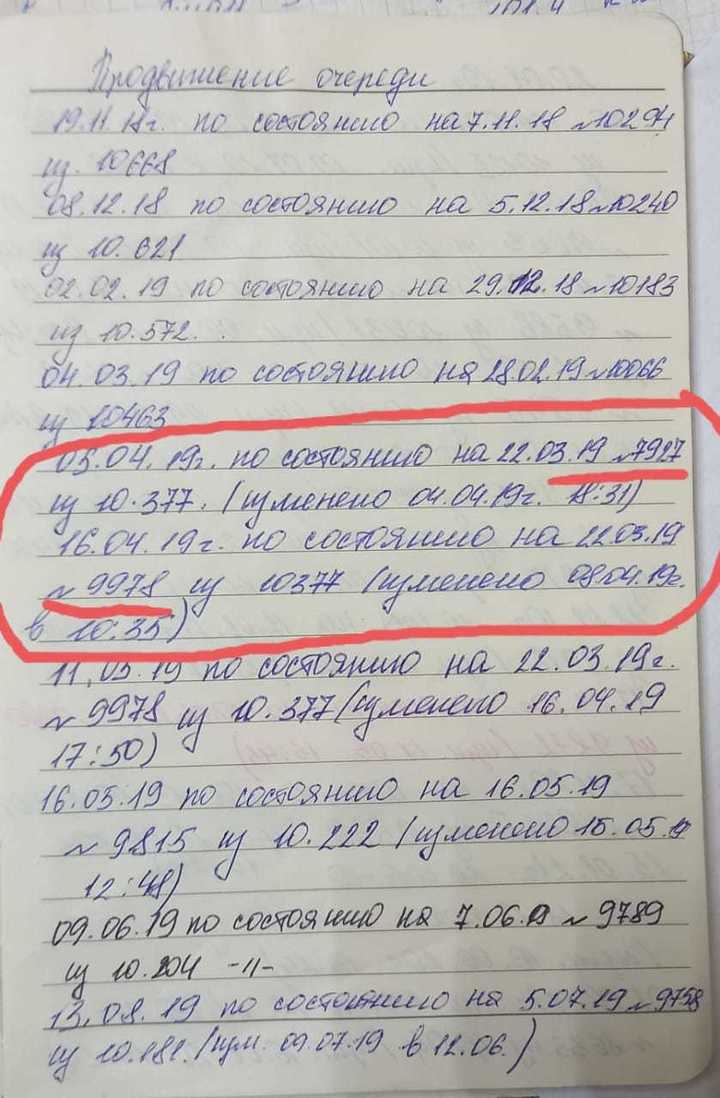 Продвижение очереди
19.11.18г. по состоянию на 7.11.18 №10294
из 10668
08.12.18 по состоянию на 5.12.18 №10240
из 10.621
02.02.19 по состоянию на 29.12.18 №10183
из 10.572.
04.03.19 по состоянию на 28.02.19 №10066
из 10463
05.04.19г. по состоянию на 22.03.19 №7927
из 10.377. (изменено 04.04.19г. 18:31)
16.04.19г. по состоянию на 22.03.19
№9978 из 10377 (изменено 08.04.19г.
в 10:35)
11.05.19 по состоянию на 22.03.19г.
№9978 из 10.377 (изменено 16.04.19
17:50)
16.05.19 по состоянию на 16.05.19
№9815 из 10.222 (изменено 15.05.19
12:48)
09.06.19 по состоянию на 7.06.19 №9789
из 10.204 -11-
13.08.19 по состоянию на 5.07.19 №9758
из 10.181. (изм. 09.07.19 в 12.06.)